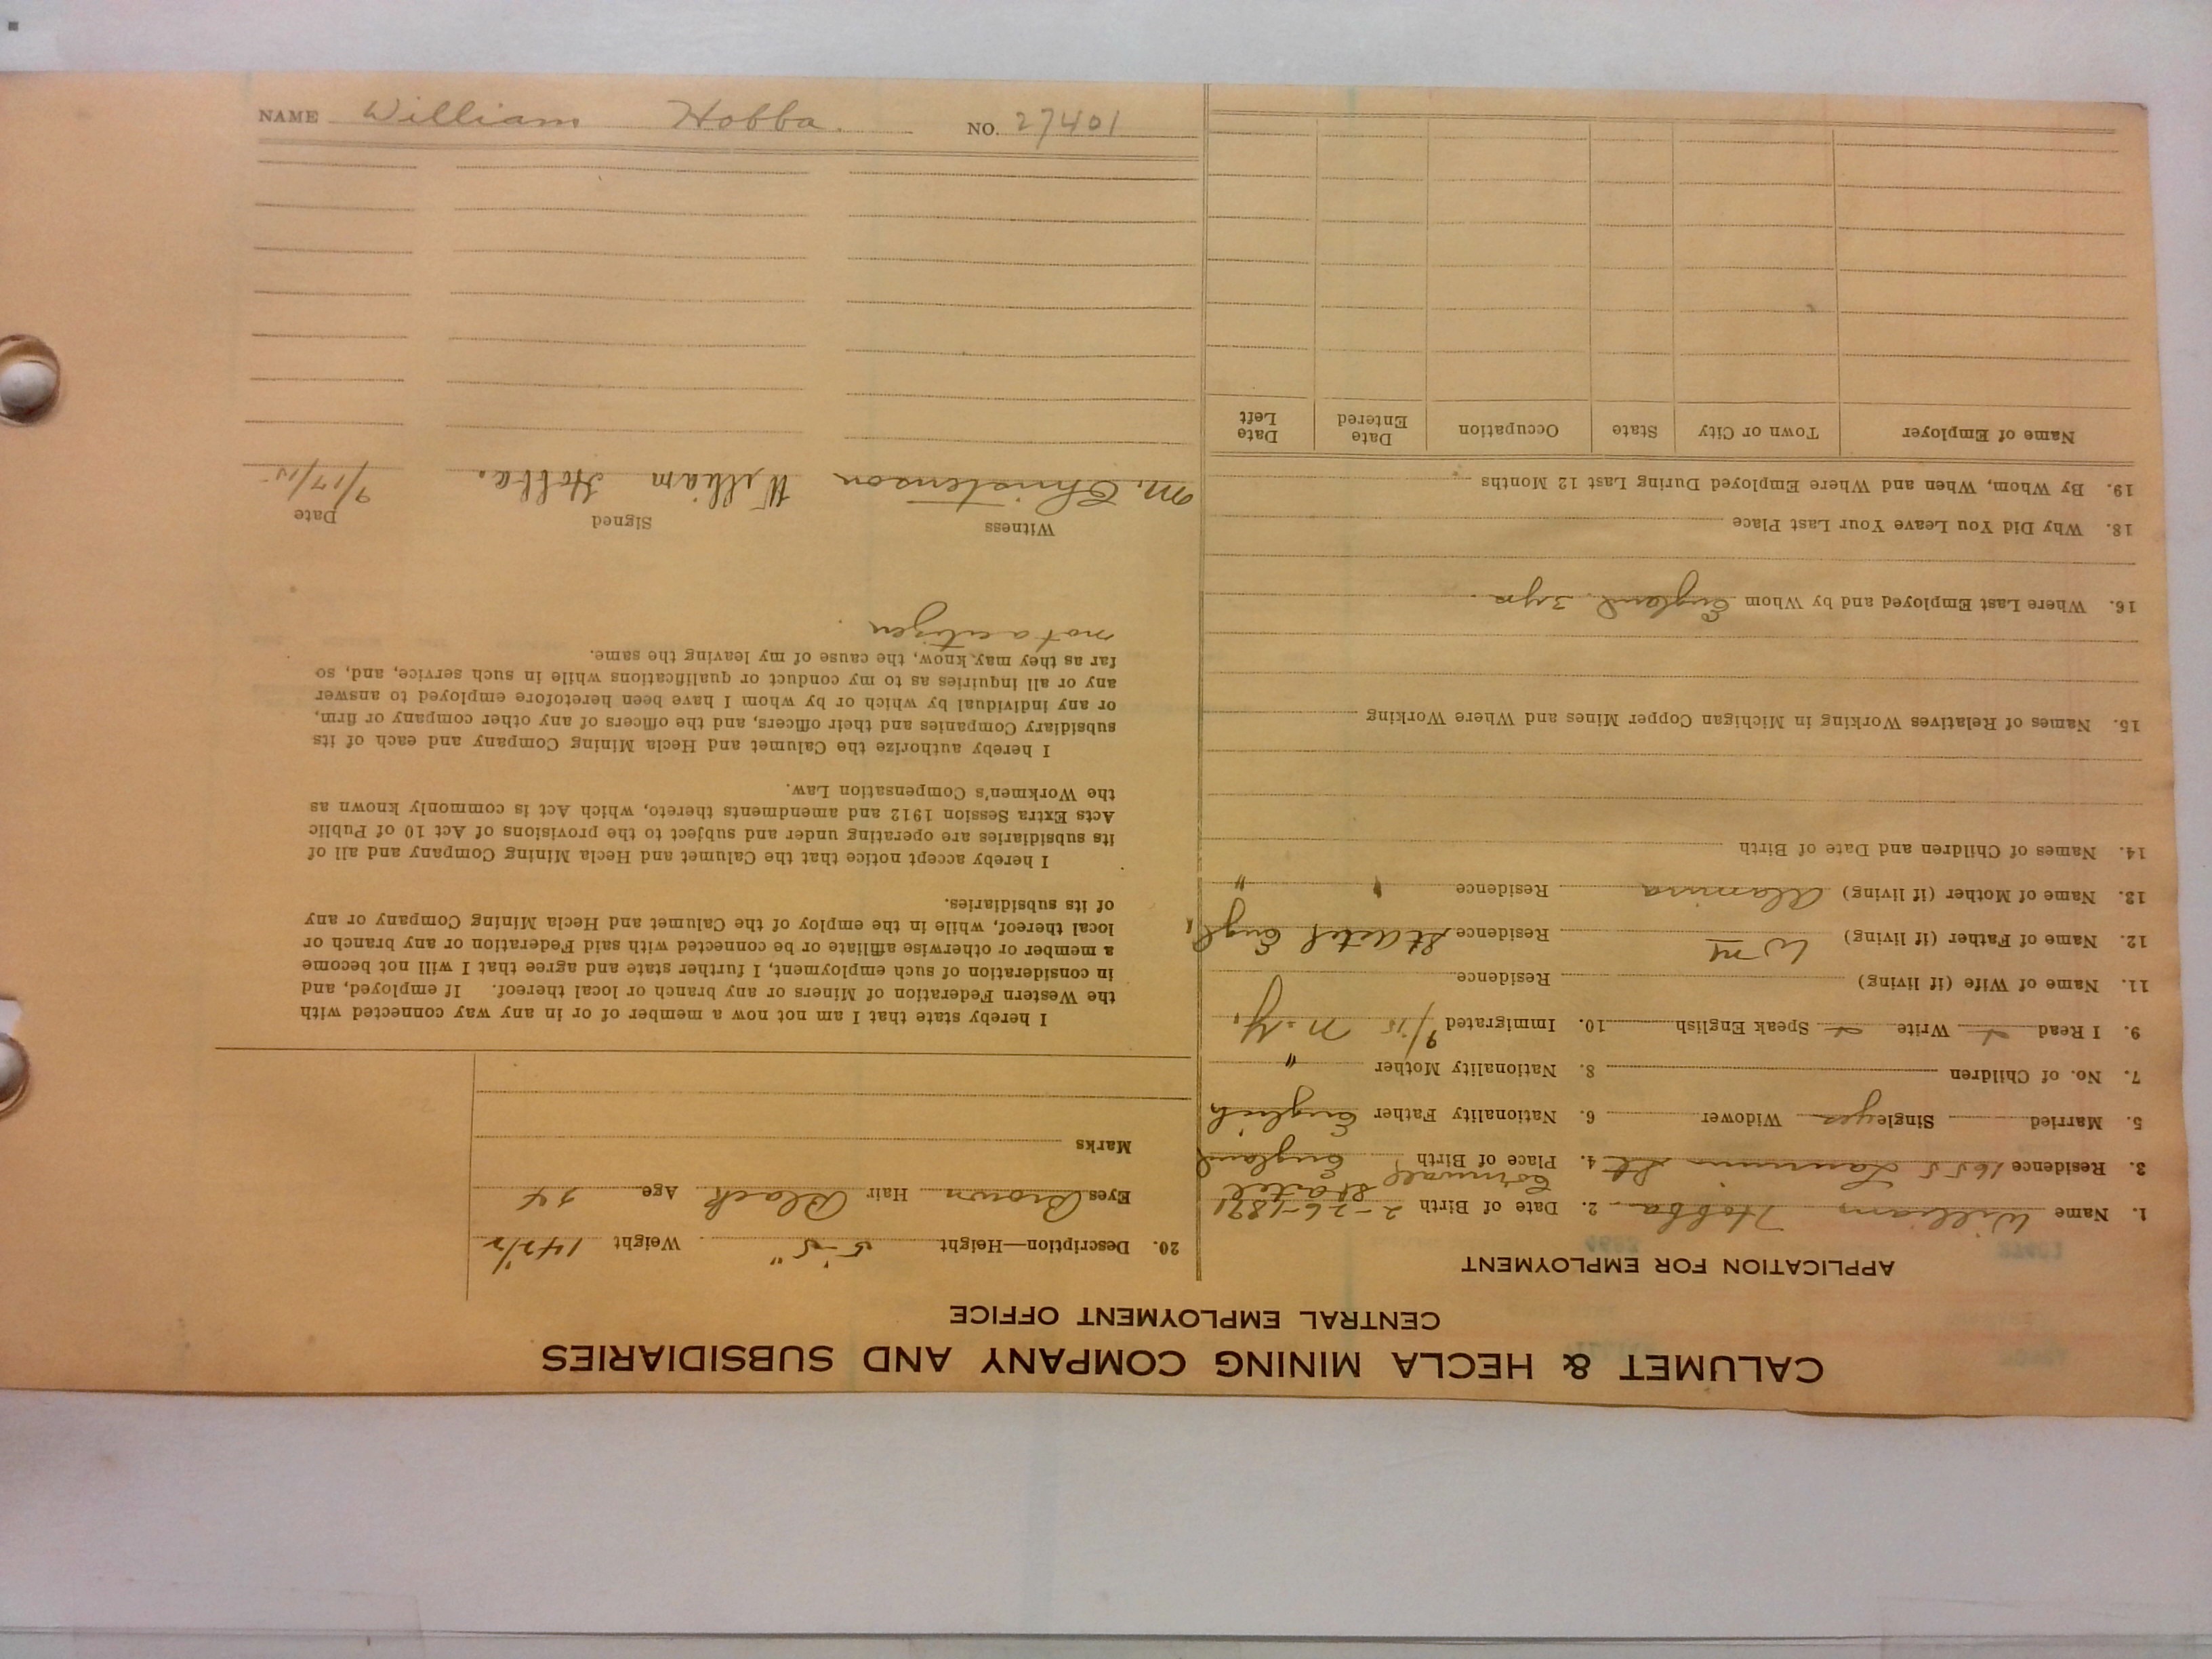 CALUMET & HECLA MINING COMPANY AND SUBSIDIARIES
CENTRAL EMPLOYMENT OFFICE
APPLICATION FOR EMPLOYMENT
1. Name William Hobba 2. Date of Birth 2-26-1891
3. Residence 1655 St. 4. Place of Birth Cornwall England
5. Married Single yes Widower 6. Nationality Father English
7. No. of Children 8. Nationality Mother "
9. I Read Write Speak English 10. Immigrated 9/15 N.Y.
11. Name of Wife (if living) Residence
12. Name of Father (if living) Wm Residence Engl
13. Name of Mother (if living) Residence " "
14. Names of Children and Date of Birth
15. Names of Relatives Working in Michigan Copper Mines and Where Working
16. Where Last Employed and by Whom England. 3 yrs.
18. Why Did You Leave Your Last Place
19. By Whom, When and Where Employed During Last 12 Months
Name of Employer Town or City State Occupation Date Entered Date Left
20. Description—Height 5'-5" Weight 142 1/2
Eyes Brown Hair Black Age 24
Marks
I hereby state that I am not now a member of or in any way connected with
the Western Federation of Miners or any branch or local thereof. If employed, and
in consideration of such employment, I further state and agree that I will not become
a member or otherwise affiliate or be connected with said Federation or any branch or
local thereof, while in the employ of the Calumet and Hecla Mining Company or any
of its subsidiaries.
I hereby accept notice that the Calumet and Hecla Mining Company and all of
its subsidiaries are operating under and subject to the provisions of Act 10 of Public
Acts Extra Session 1912 and amendments thereto, which Act is commonly known as
the Workmen's Compensation Law.
I hereby authorize the Calumet and Hecla Mining Company and each of its
subsidiary Companies and their officers, and the officers of any other company or firm,
or any individual by which or by whom I have been heretofore employed to answer
any or all inquiries as to my conduct or qualifications while in such service, and, so
far as they may know, the cause of my leaving the same.
not a citizen.
Witness Signed Date
M. Christenson William Hobba. 9/17/15
NAME William Hobba. NO. 27401